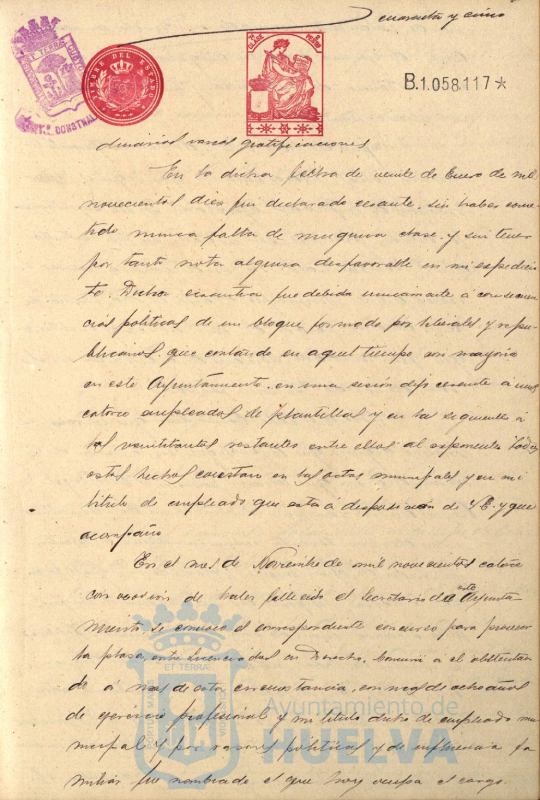 cuarenta y cinco
TIMBRE DEL ESTADO
CLASE
B.1.058.117*
varias gratificaciones
En la dicha fecha de veinte de Enero de mil
novecientos diez fui declarado cesante, sin haber come-
tido nunca falta de ninguna clase y sin tener
por tanto nota alguna desfavorable en mi expedien-
te. Dicha cesantía fue debida unicamente á consecuen-
cias politicas de un bloque formado por liberales y repu-
blicanos, que contando en aquel tiempo con mayoria
en este Ayuntamiento, en una sesión dejó cesante á unos
catorce empleados de plantillas y en las siguientes á
los restantes entre ellos al exponente. Todos
estos hechos constan en las actas municipales y en mi
titulo de empleado que está á disposición de V.E. y que
acompaño
En el mes de Noviembre de mil novecientos catorce
con ocasión de haber fallecido el Secretario de este Ayunta-
miento, se convocó el correspondiente concurso para proveer
la plaza, entre Licenciados en Derecho. á el
do á más de esta circunstancia, con más de ocho años
de ejercicio profesional y mi titulo dicho de empleado mu-
nicipal y por razones politicas y de influencia fa-
miliar fue nombrado el que hoy ocupa el cargo
ET TERRA
Ayuntamiento de
HUELVA